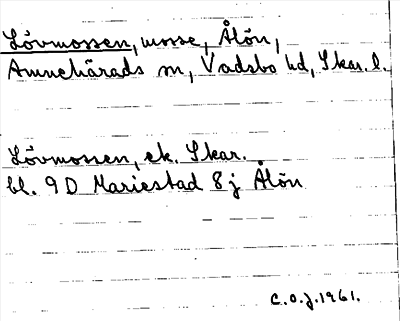 Lövmossen, mosse, Ålön,
Amnehärads sn, Vadsbo hd, Skar. l.
Lövmossen, ek. Skar.
bl. 9 D Mariestad 8 j Ålön
C.O.J. 1961.